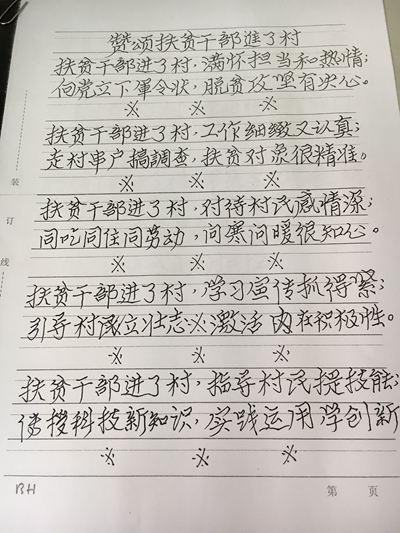 赞颂扶贫干部進了村
扶贫干部进了村，满怀担当和热情；
向党立下军令状，脱贫攻坚有决心。
※ ※ ※
扶贫干部进了村，工作细緻又认真；
走村串户搞調查，扶贫对象很精准。
※ ※ ※
扶贫干部进了村，对待村民感情深；
同吃同住同劳动，问寒问暖很知心。
※ ※ ※
扶贫干部进了村，学习宣传抓得紧；
引导村民立壮志※激活内在积极性。
※ ※ ※
扶贫干部进了村，指导村民提技能；
传授科技新知识，实践运用学创新
※ ※ ※
装
订
线
第 页